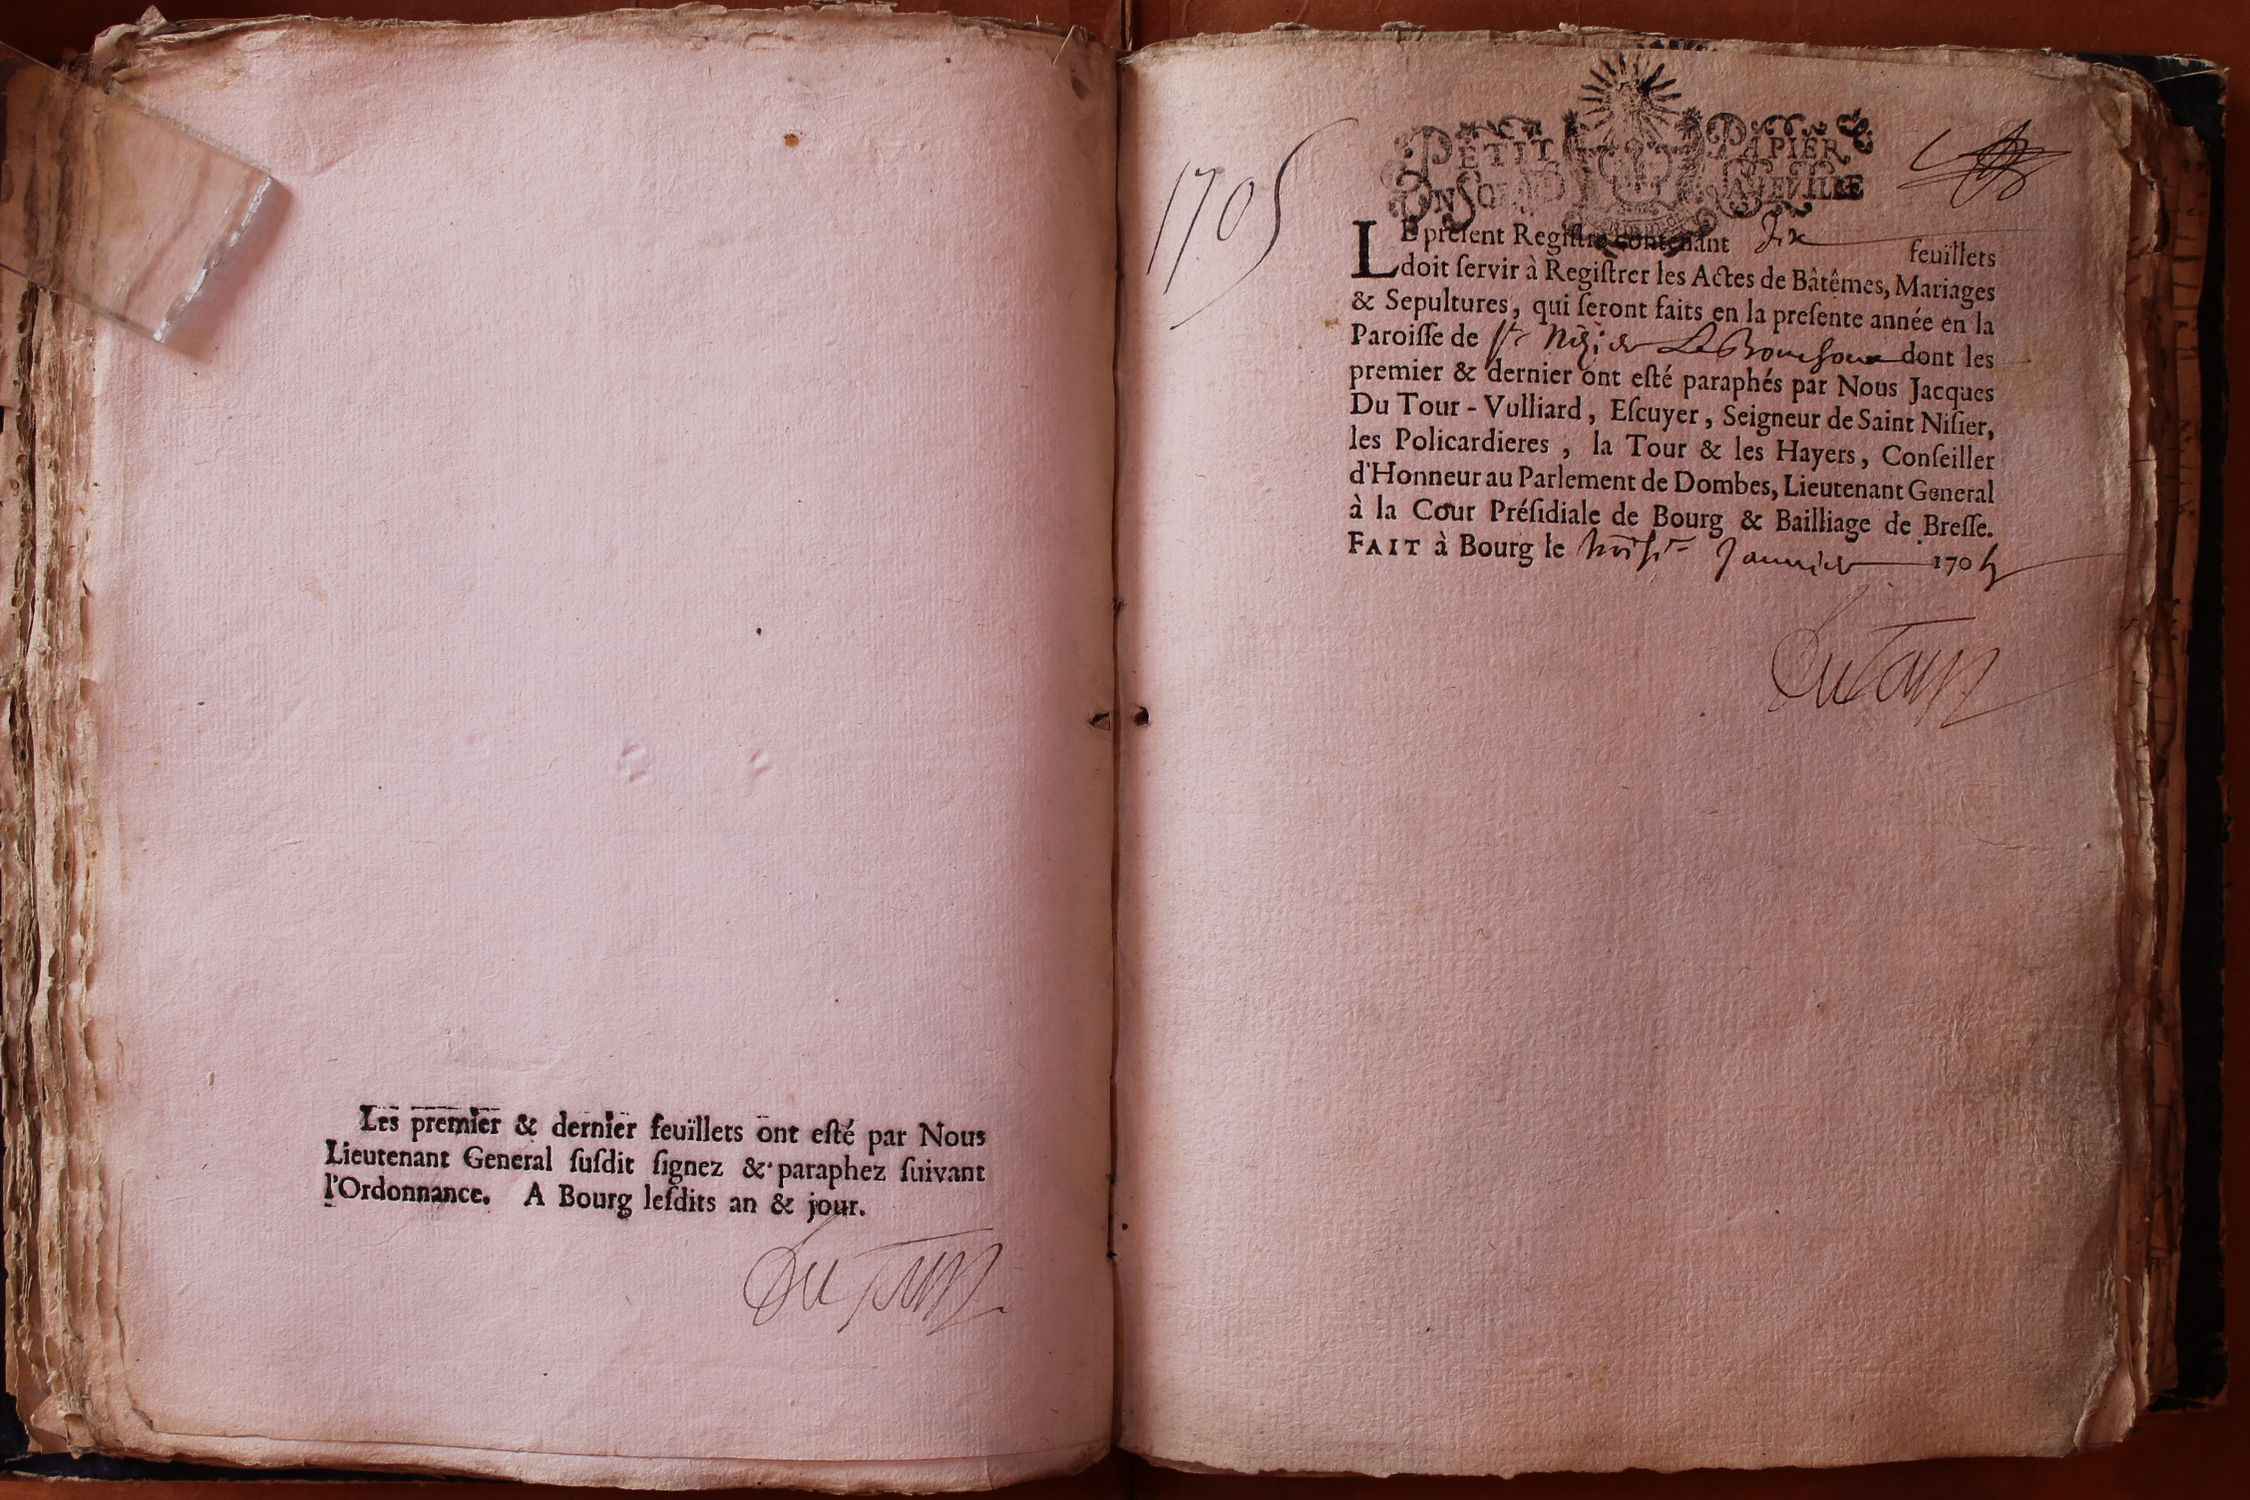 Les premier & dernier feuillets ont eſté par Nous
Lieutenant General ſuſdit ſignez & paraphez ſuivant
l'Ordonnance. A Bourg leſdits an & jour.
1705
PETIT PAPIER
LE preſent Regiſtre contenant dix feuillets
doit ſervir à Regiſtrer les Actes de Bâtêmes, Mariages
& Sepultures, qui ſeront faits en la preſente année en la
Paroiſſe de St Nizier Le Bouchoux dont les
premier & dernier ont eſté paraphés par Nous Jacques
Du Tour - Vulliard, Eſcuyer, Seigneur de Saint Niſier,
les Policardieres, la Tour & les Hayers, Conſeiller
d'Honneur au Parlement de Dombes, Lieutenant General
à la Cour Préſidiale de Bourg & Bailliage de Breſſe.
FAIT à Bourg le Janvier 1705